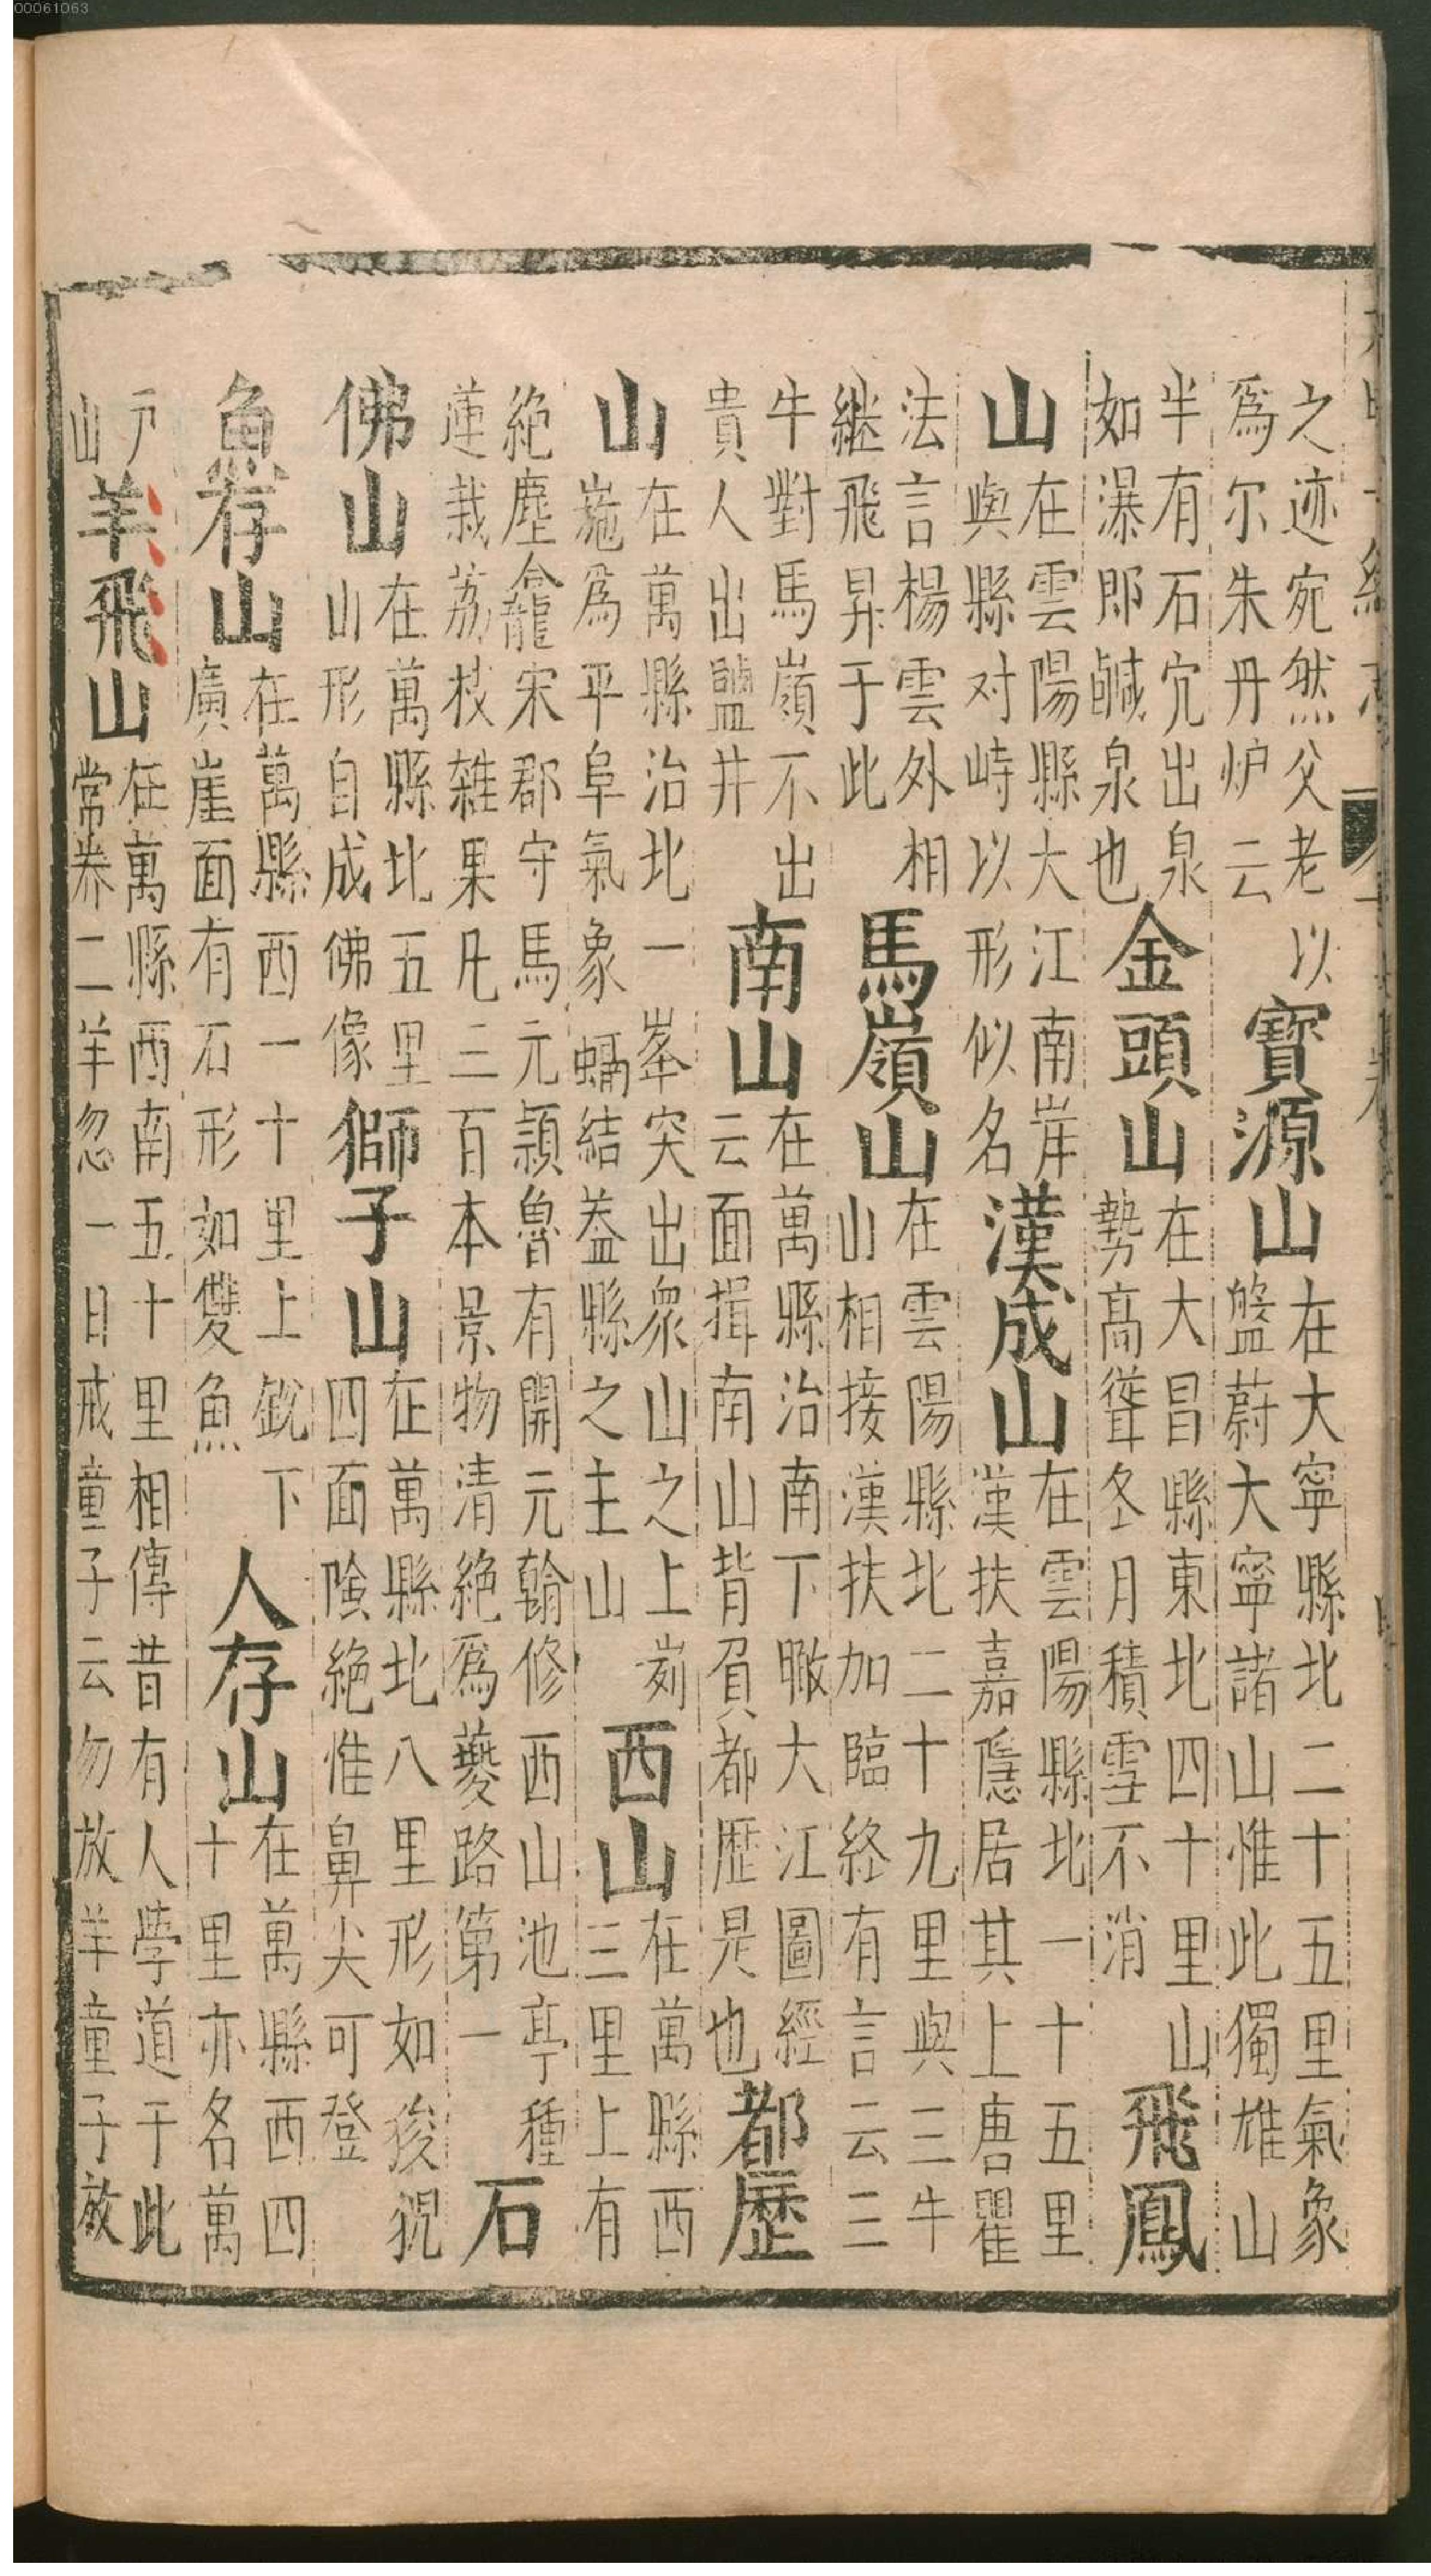 00061063
之迹宛然父老以
為尔朱丹炉云
寶源山
在大寧縣北二十五里氣象
盤蔚大寧諸山惟此獨雄山
半有石穴出泉
如瀑即鹹泉也
金頭山
在大昌縣東北四十里山
勢高聳冬月積雪不消
飛鳳
山
在雲陽縣大江南岸
與縣对峙以形似名
漢成山
在雲陽縣北一十五里
漢扶嘉隱居其上唐瞿
法言楊雲外相
継飛昇于此
馬嶺山
在雲陽縣北二十九里與三牛
山相接漢扶加臨終有言云三
牛對馬嶺不出
貴人出鹽井
南山
在萬縣治南下瞰大江圖經
云面揖南山背負都歷是也
都歷
山
在萬縣治北一峯突出衆山之上峛
崺為平阜氣象蟠結葢縣之主山
西山
在萬縣西
三里上有
絶塵龕宋郡守馬元頴魯有開元翰修西山池亭種
蓮栽荔枝雜果凡三百本景物清絶爲夔路第一
石
佛山
在萬縣北五里
山形自成佛像
獅子山
在萬縣北八里形如狻猊
四面險絶惟鼻尖可登
魚存山
在萬縣西一十里上銳下
廣崖面有石形如雙魚
人存山
在萬縣西四
十里亦名萬
戶
山
羊飛山
在萬縣西南五十里相傳昔有人學道于此
常养二羊忽一日戒童子云勿放羊童子放